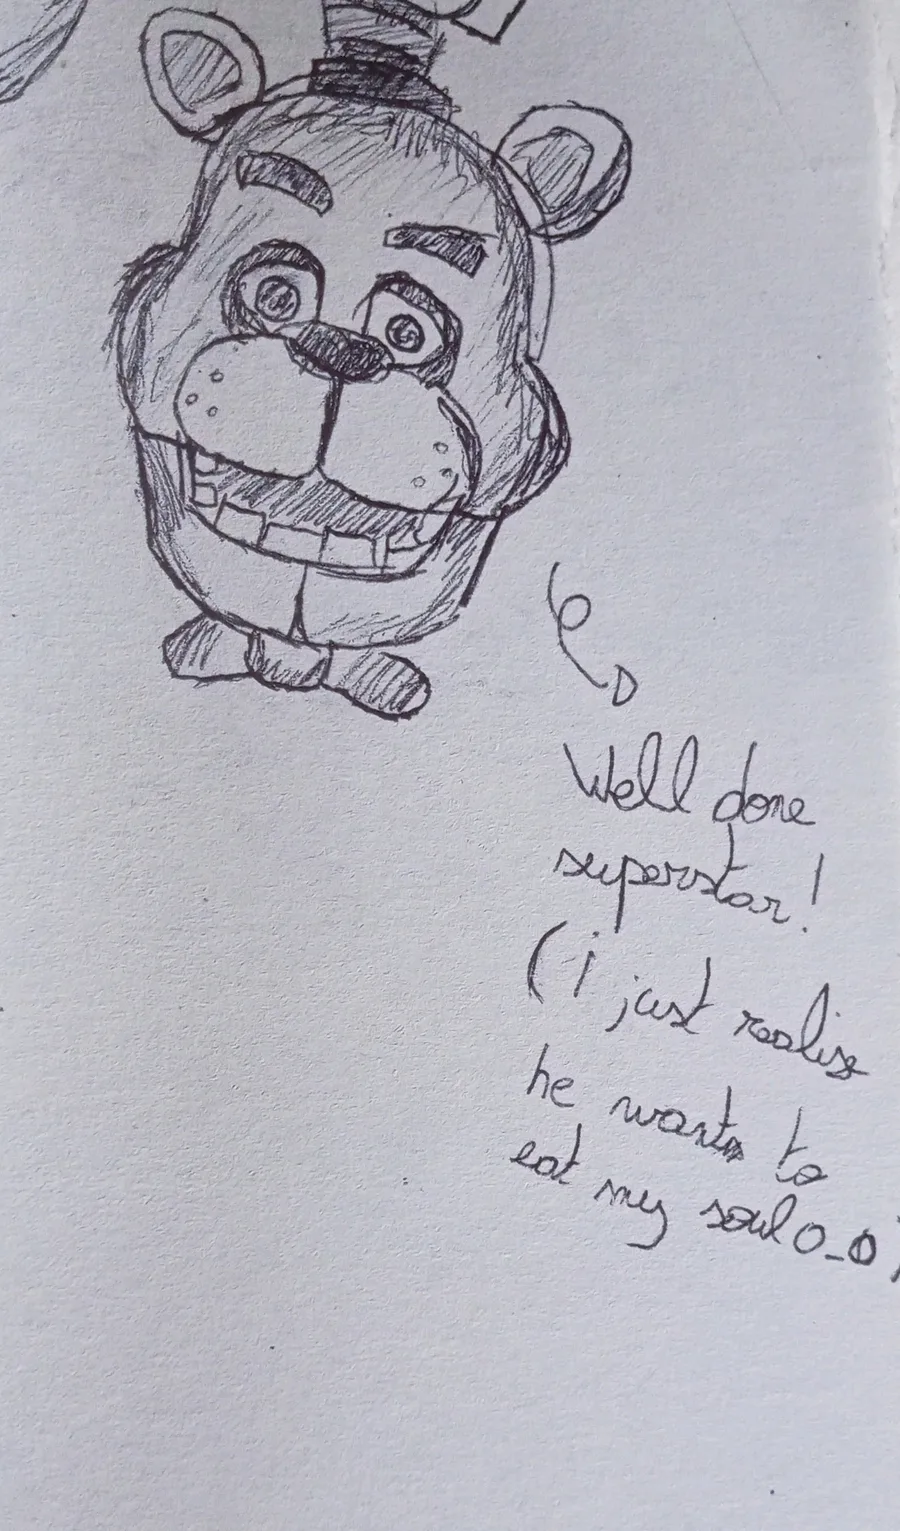 Well done
superstar!
(i just realise
he wants to
eat my soul o_o)